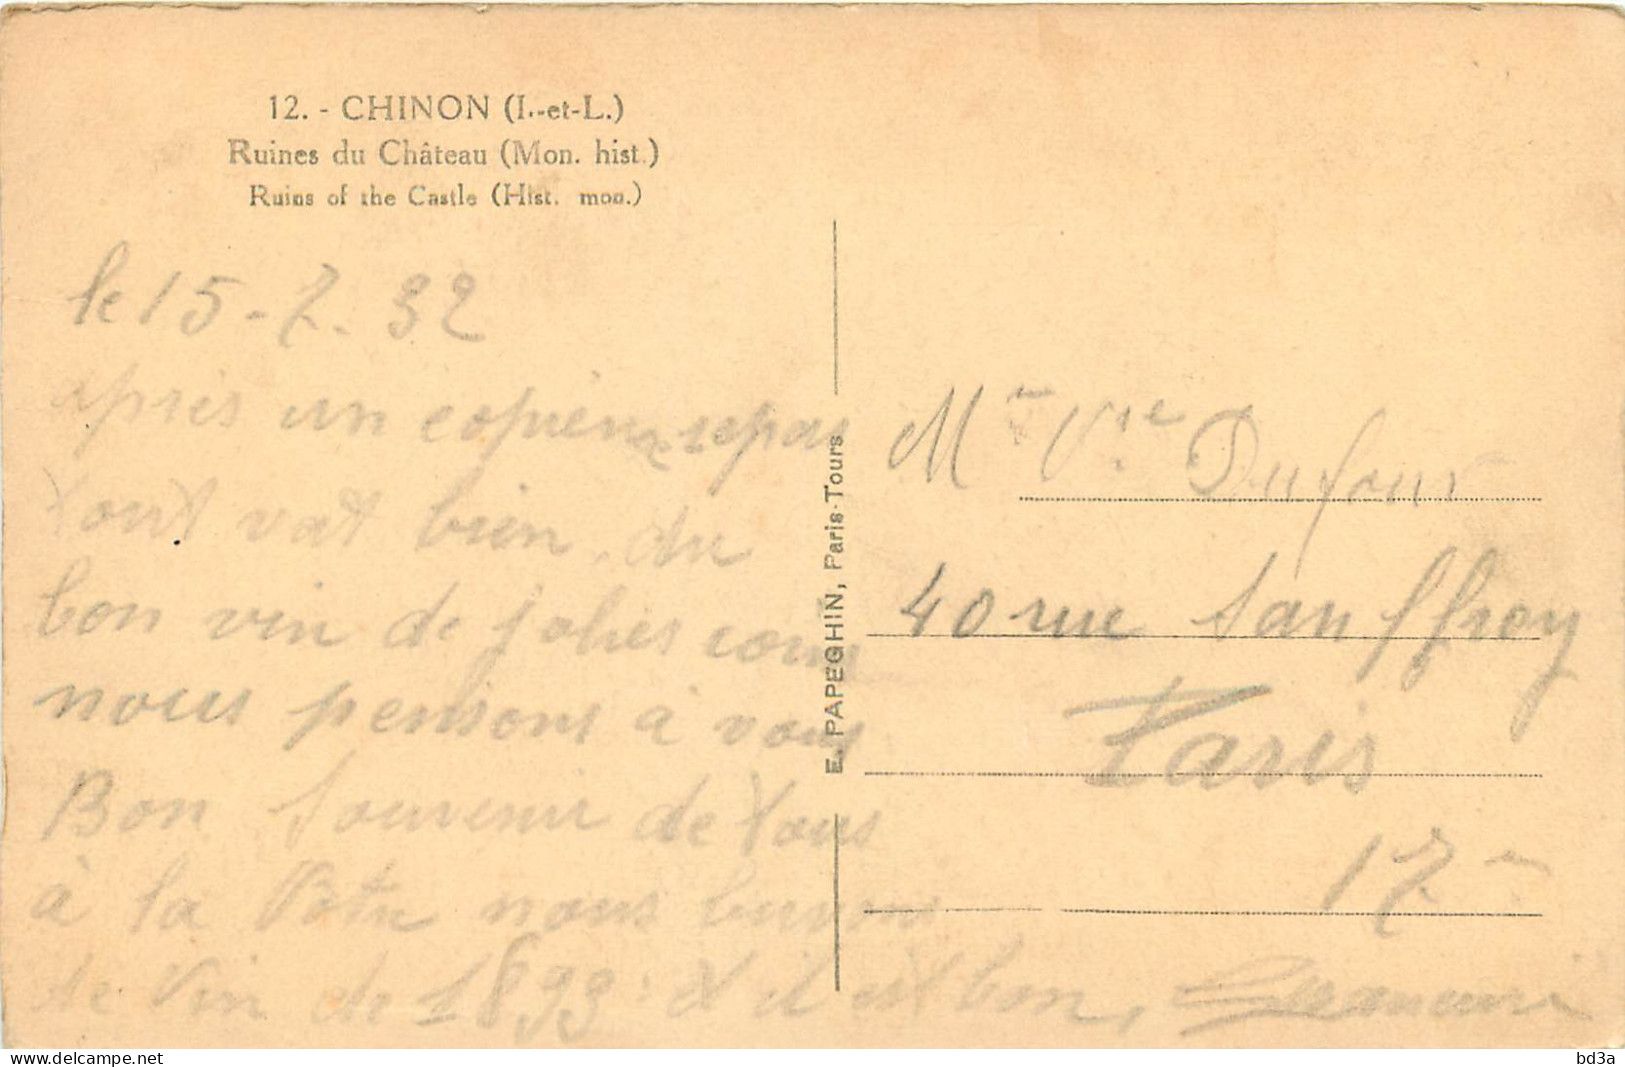 12. - CHINON (I.-et-L.)
Ruines du Château (Mon. hist.)
Ruins of the Castle (Hist. mon.)
le 15-7-32
après un copieux repas
tout vat bien, du
bon vin de jolies
nous pensons à vous
Bon Souvenir de tous
à la Votre nous buvons
de Vin de 1893 : et il est bon,
E. PAPEGHIN, Paris-Tours
Mme Vve Dufour
40 rue Sauffroy
Paris
17e
www.delcampe.net
bd3a